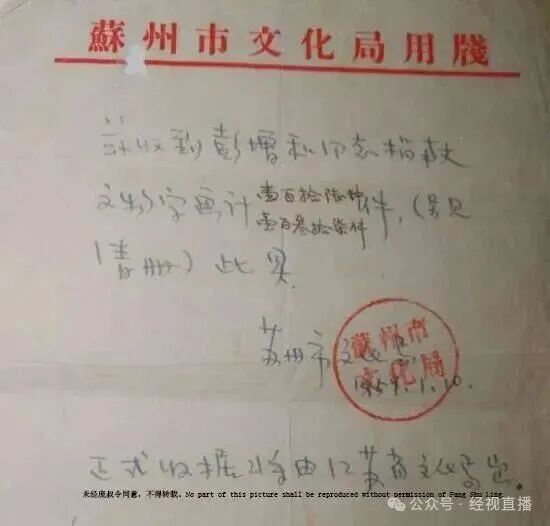 蘇州市文化局用牋
兹收到彭增和同志捐献
文物字画计壹百叁拾柒件件，（另见
清册）此具.
苏州市文化局
蘇州市
文化局
1959.1.10.
正式收据将由江苏省文化局出。
未经庞叔令同意，不得转载. No part of this picture shall be reproduced without permission of Pang Shu Ling
公众号·经视直播